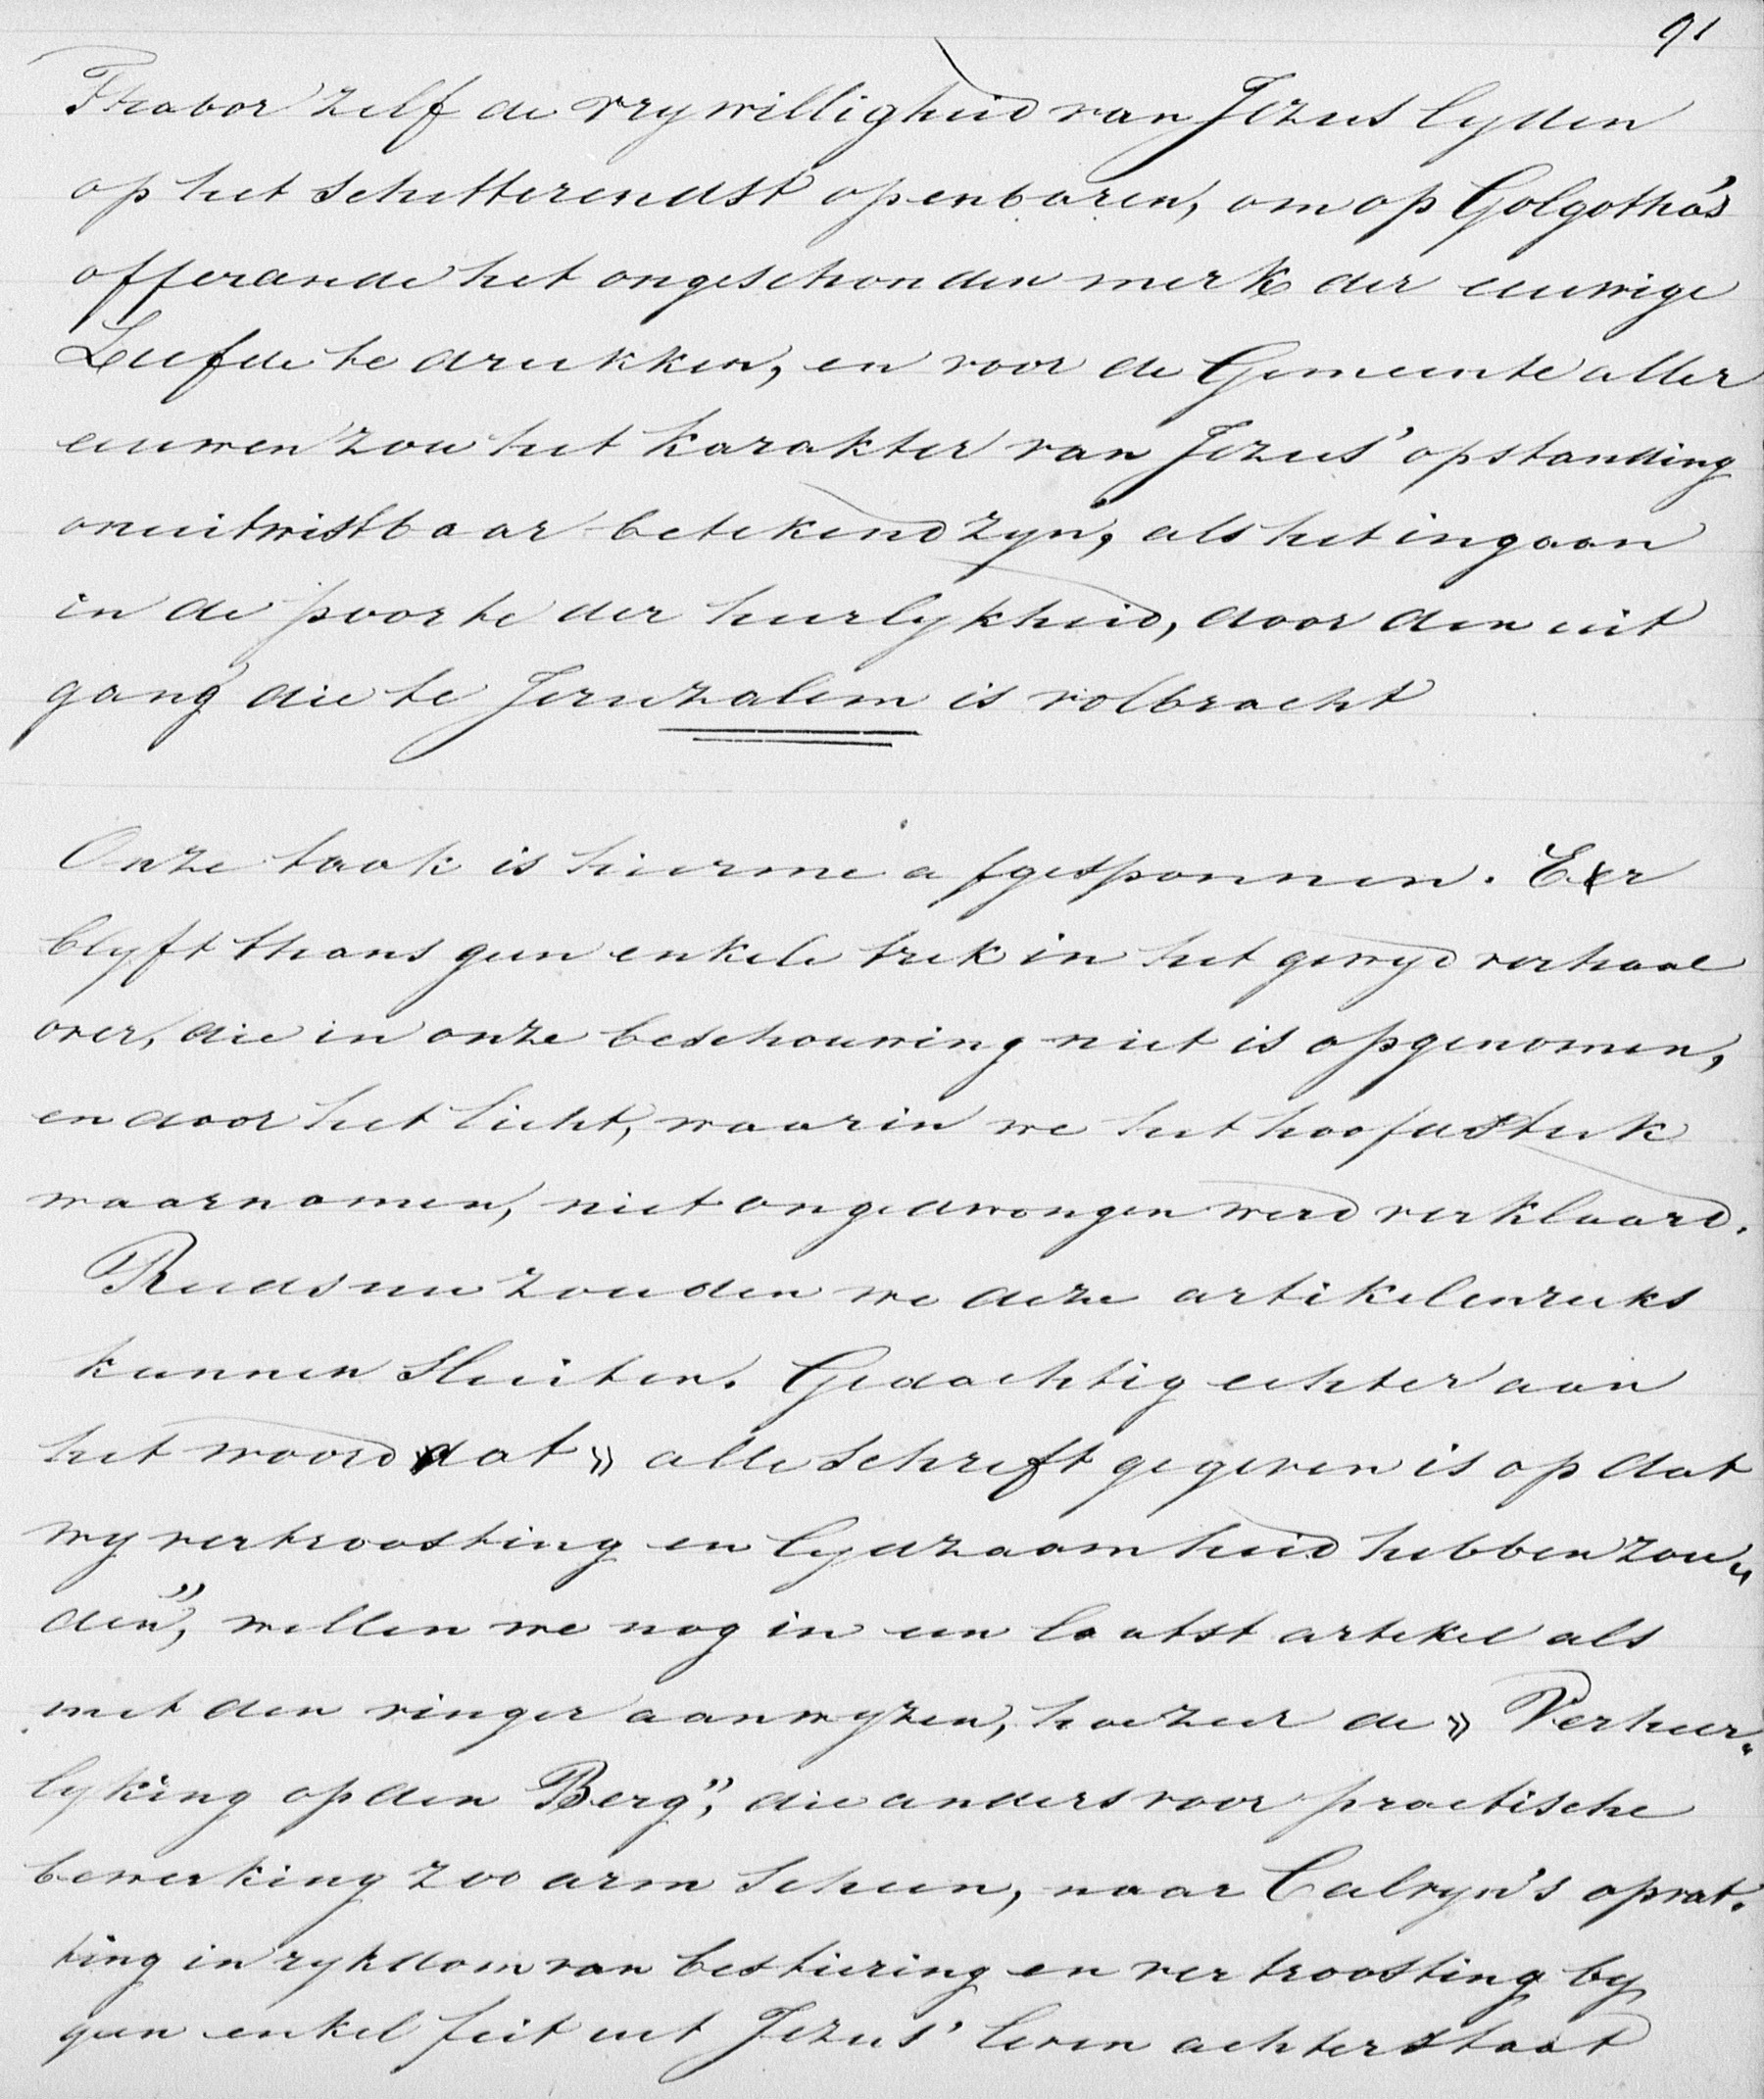 91
Thabor zelf de vrywilligheid van Jezus lyden
op het schitterendst openbaren, om op Golgotha's
offerande het ongeschonden merk der eeuwige
Liefde te drukken, en voor de Gemeente aller
eeuwen zou het karakter van Jezus' opstanding
onuitwistbaar betekend zyn, als het ingaan
in de poorte der heerlykheid, door den uit
gang die te Jeruzalem is volbracht
Onze taak is hierme afgesponnen. Er
blyft thans geen enkele trek in het gewyd verhaal
over, die in onze beschouwing niet is opgenomen,
en door het licht, waarin we het hoofdstuk
waarnamen, niet ongedwongen werd verklaard.
Reeds nu zouden we deze artikelenreeks
kunnen sluiten. Gedachtig echter aan
het woord dat » alle schrift gegeven is op dat
wy vertroosting en lydzaamheid hebben zou„
den", willen we nog in een laatst artikel als
met den vinger aanwyzen, hoezeer de » Verheer„
lyking op den Berg", die anders voor practische
bewerking zoo arm scheen, naar Calvyn's opvat„
ting in rykdom van bestiering en vertroosting by
geen enkel feit uit Jezus' leven achterstaat